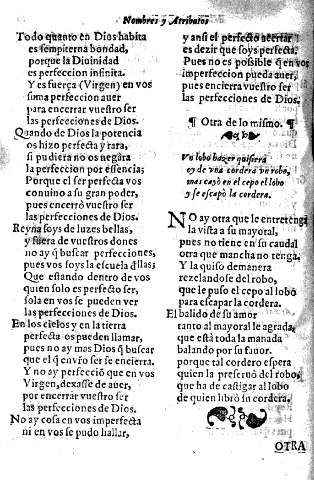 Nombres y Atributos
Todo quanto en Dios habita
es sempiterna bondad,
porque la Diuinidad
es perfeccion infinita.
Y es fuerça (Virgen) en vos
suma perfeccion auer
para encerrar vuestro ser
las perfecciones de Dios.
Quando de Dios la potencia
os hizo perfeta y rara,
si pudiera no os negára
la perfeccion por essencia;
Porque el ser perfeta vos
conuino a su gran poder,
pues encerrò vuestro ser
las perfecciones de Dios.
Reyna soys de luzes bellas,
y fuera de vuestros dones
no ay q̃ buscar perfecciones,
pues vos soys la escuela dllas;
Que estando dentro de vos
quien solo es perfecto ser,
sola en vos se pueden ver
las perfecciones de Dios.
En los cielos y en la tierra
perfecta os pueden llamar,
pues no ay mas Dios q̃ buscar
que el q̃ en vr̃o ser se encierra.
Y no ay perfecciõ que en vos
Virgen, dexasse de auer,
por encerrar vuestro ser
las perfecciones de Dios.
No ay cosa en vos imperfecta
ni en vos se pudo hallar,
y ansi el perfecto acertar
es dezir que soys perfecta.
Pues no es possible q̃ en vos
imperfeccion pueda auer,
pues encierra vuestro ser
las perfecciones de Dios.
¶ Otra de lo mismo. ¶
Vn lobo hazer quisiera
oy de vna cordera vn robo,
mas cayò en el cepo el lobo
y se escapò la cordera.
NO ay otra que le entretenga
la vista a su mayoral,
pues no tiene en su caudal
otra que mancha no tenga.
Y la quiso de manera
rezelandose del robo,
que le puso el cepo al lobo
para escapar la cordera.
El balido de su amor
tanto al mayoral le agrada,
que está toda la manada
balando por su fauor.
porque tal cordero espera
quien la preseruò del robo,
que ha de castigar al lobo
de quien librò su cordera.
OTRA